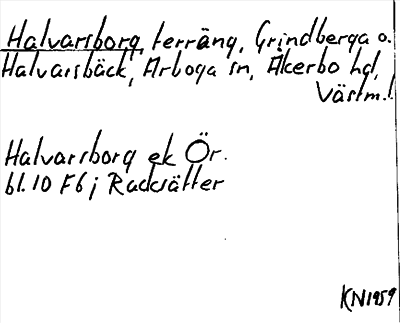 Halvarsborg, terräng, Grindberga o.
Halvarsbäck, Arboga sn, Åkerbo hd,
Västm. l.
Halvarsborg ek Ör.
bl. 10 F6 j Rucksätter
KN 1959